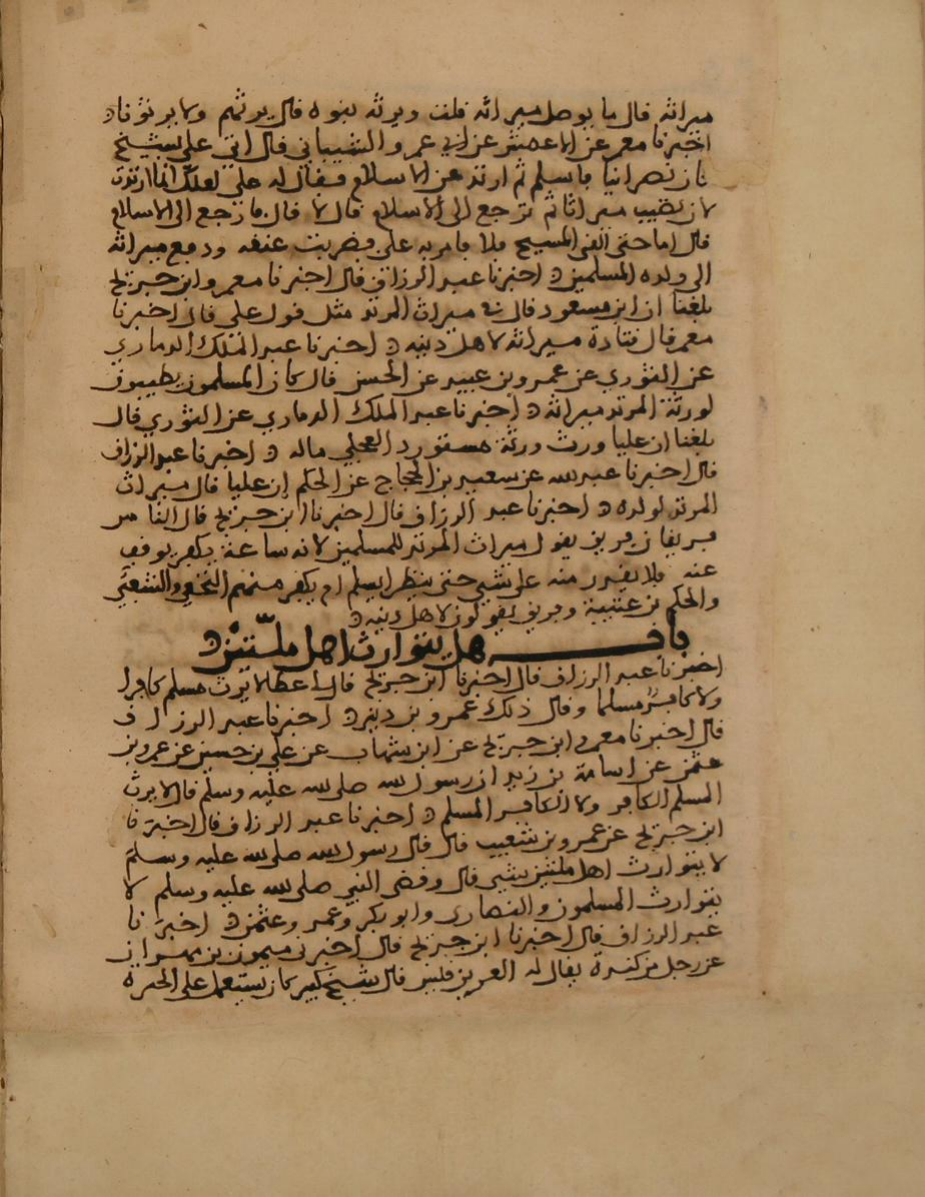 ميراثه قال ما يوصل ميراثه قلت ويرثه بنوه قال يرثهم ولا يرثونا
اخبرنا معمر عن الاعمش عن ابي عمرو الشيباني قال اتي علي بشيخ
كان نصرانيا فاسلم ثم ارتد عن الاسلام فقال له علي لعلك انما ارتددت
لان تصيب ميراثا ثم ترجع الى الاسلام قال لا قال فارجع الى الاسلام
قال اما حتى القى المسيح فلا فامر به علي فضربت عنقه ودفع ميراثه
الى ولده المسلمين اخبرنا عبد الرزاق قال اخبرنا معمر وابن جريج
بلغنا ان ابن مسعود قال في ميراث المرتد مثل قول علي قال اخبرنا
معمر قال قتادة ميراثه لاهل دينه اخبرنا عبد الملك الذماري
عن الثوري عن عمرو بن عبيد عن الحسن قال كان المسلمون يطيبون
لورثة المرتد ميراثه اخبرنا عبد الملك الذماري عن الثوري قال
بلغنا ان عليا ورث ورثة مستورد العجلي ماله اخبرنا عبد الرزاق
قال اخبرنا عبد الله عن سعيد بن الحجاج عن الحكم ان عليا قال ميراث
المرتد لولده اخبرنا عبد الرزاق قال اخبرنا ابن جريج قال الناس
فريقان فريق يقول ميراث المرتد للمسلمين لانه ساعة يكفر يوقف
عنه فلا يقدر منه على شيي حتى ينظر ايسلم ام يكفر منهم النخعي والشعبي
والحكم بن عتيبة وفريق يقولون لاهل دينه
باب هل يتوارث اهل ملتين
اخبرنا عبد الرزاق قال اخبرنا ابن جريج قال عطا لا يرث مسلم كافرا
ولا كافر مسلما وقال ذلك عمرو بن دينر اخبرنا عبد الرزاق
قال اخبرنا معمر وابن جريج عن ابن شهاب عن علي بن حسين عن عمرو بن
عثمن عن اسامة بن زيد ان رسول الله صلى الله عليه وسلم قال لا يرث
المسلم الكافر ولا الكافر المسلم اخبرنا عبد الرزاق قال اخبرنا
ابن جريج عن عمرو بن شعيب قال قال رسول الله صلى الله عليه وسلم
لا يتوارث اهل ملتين بشيي قال وقضى النبي صلى الله عليه وسلم لا
يتوارث المسلمون والنصارى وابو بكر وعمر وعثمن اخبرنا
عبد الرزاق قال اخبرنا ابن جريج قال اخبرني ميمون بن مهران
عن رجل من كندة يقال له العرين قيس قال شيخ كبير كان يستعمل على الحيرة